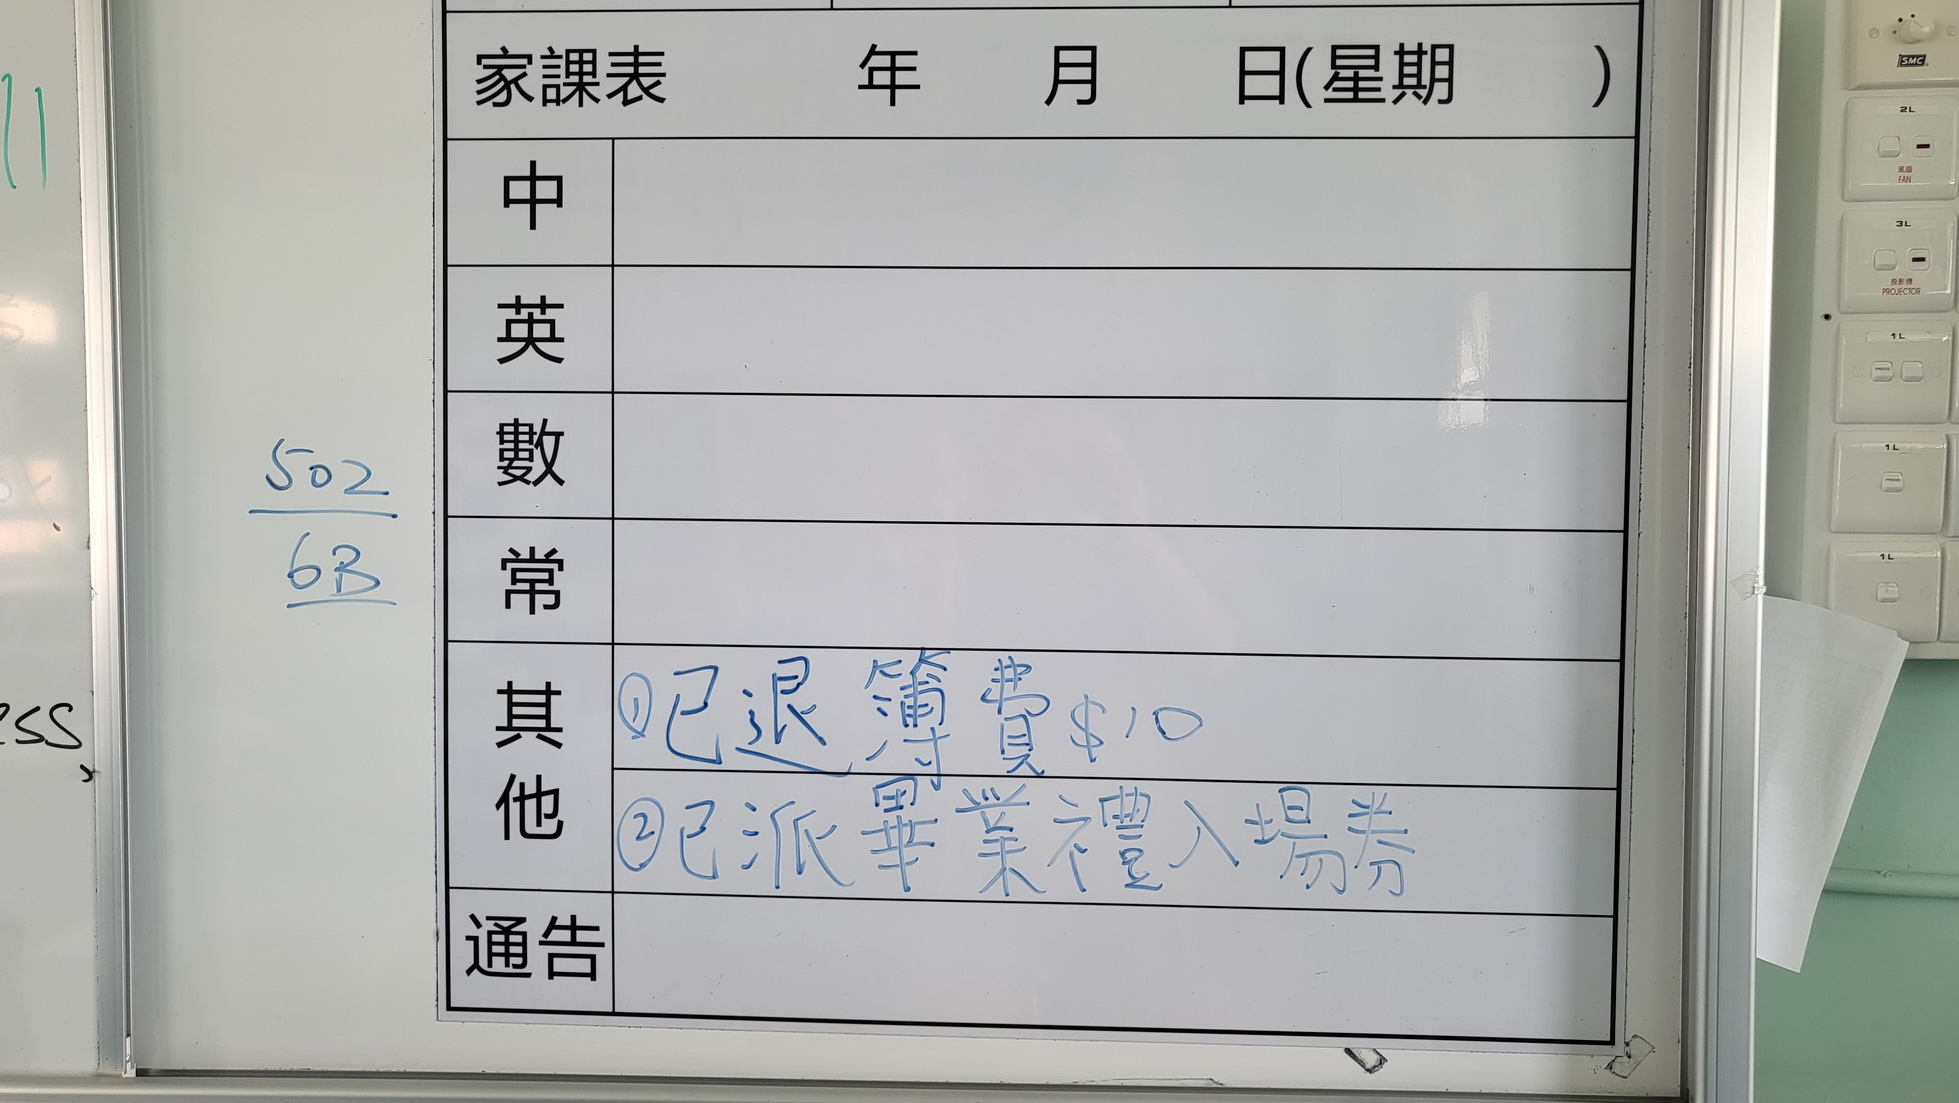 家課表 年 月 日(星期 )
中
英
數
常
其他
①已退簿費$10
②已派畢業禮入場券
通告
502
6B
SMC
2L
風扇
FAN
3L
投影機
PROJECTOR
1L
1L
1L